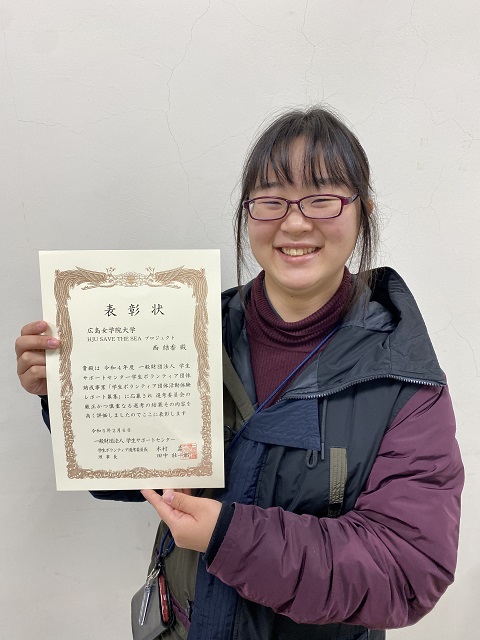 表彰状
広島女学院大学
HJU SAVE THE SEA プロジェクト
西 結香 殿
貴殿は 令和４年度 一般財団法人 学生
サポートセンター学生ボランティア団体
助成事業「学生ボランティア団体活動体験
レポート募集」に応募され 選考委員会の
厳正かつ慎重なる選考の結果その内容を
高く評価しましたのでここに表彰します
令和５年２月６日
一般財団法人 学生サポートセンター
学生ボランティア選考委員長 木村
理事長 田中